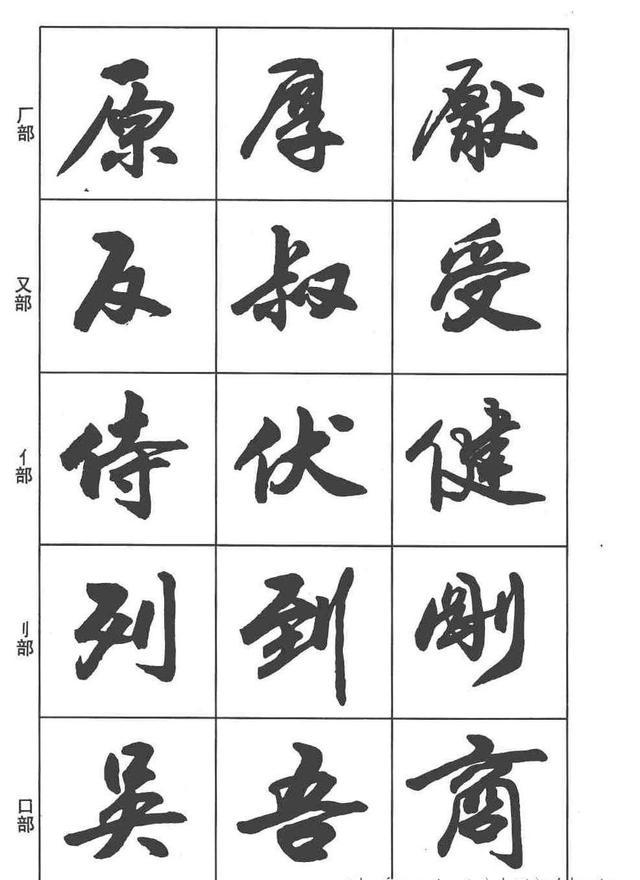 厂部 原 厚 厭
又部 反 叔 受
亻部 侍 伏 健
刂部 列 到 剛
口部 吳 吾 商